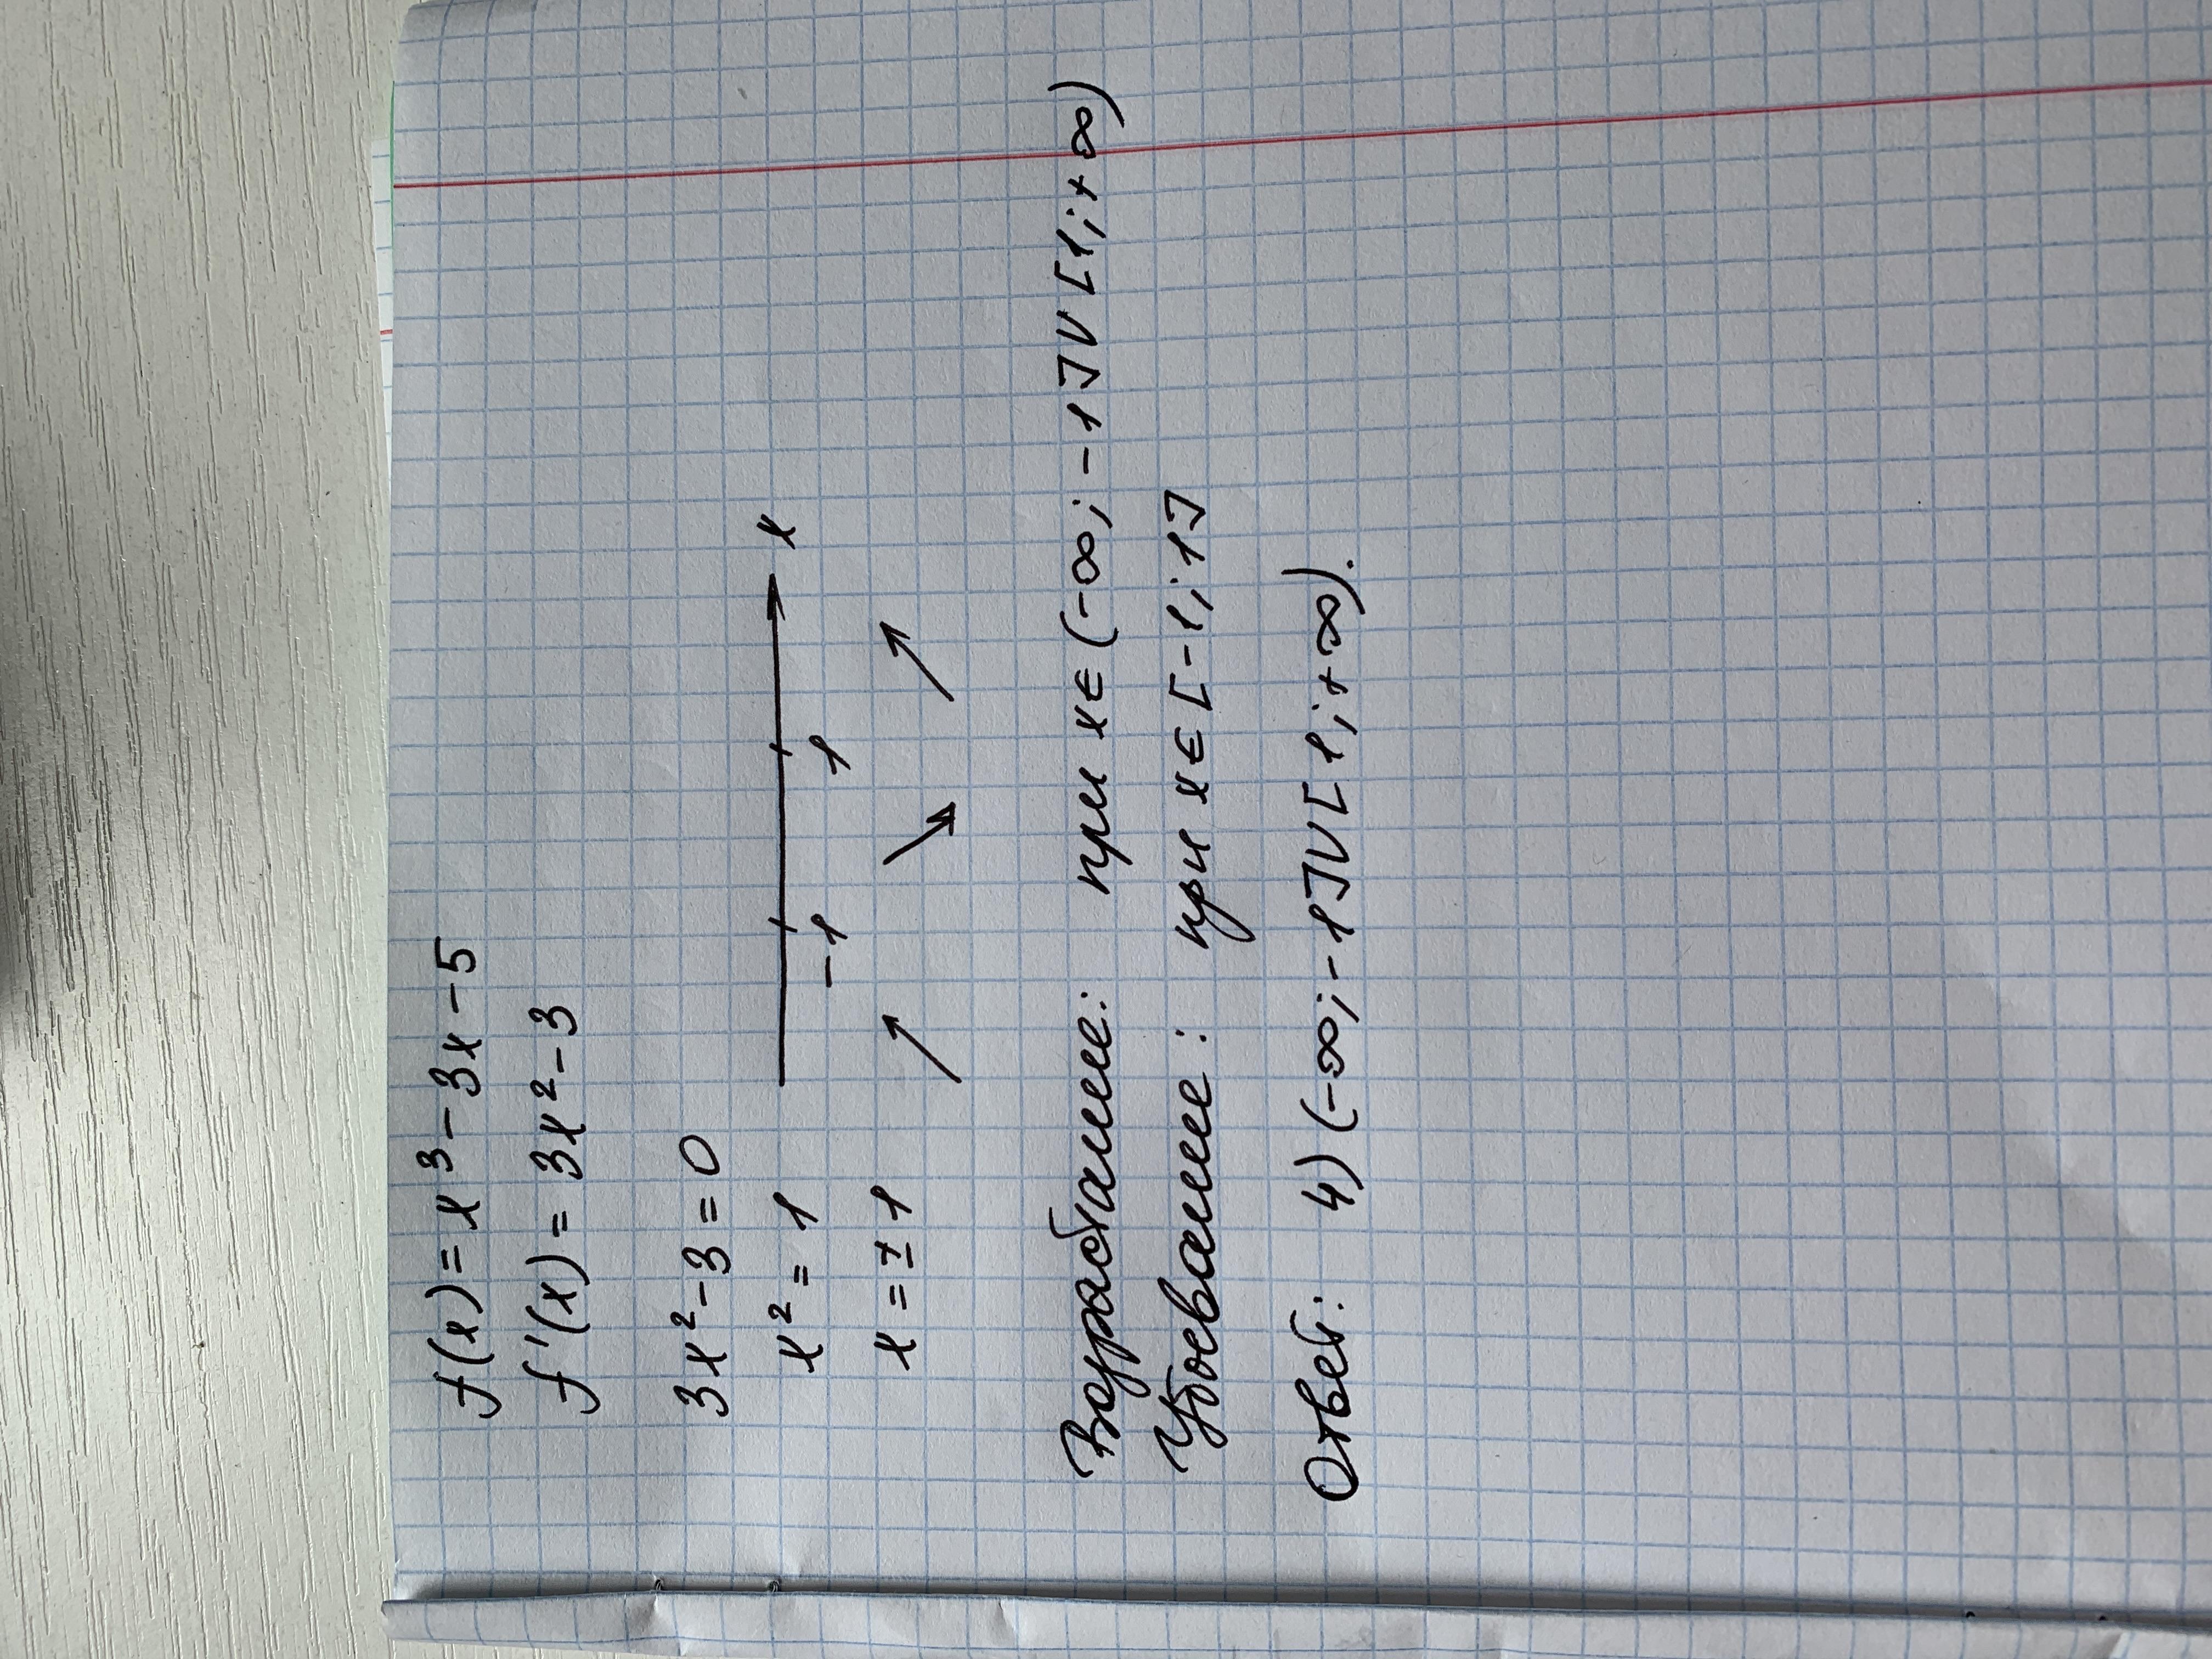 f(x) = x³ - 3x - 5
f'(x) = 3x² - 3
3x² - 3 = 0
x² = 1
x = ± 1
-1 1 x
Возрастание: при x ∈ (-∞; -1] ∪ [1; +∞)
Убывание: при x ∈ [-1; 1]
Ответ: 4) (-∞; -1] ∪ [1; +∞).